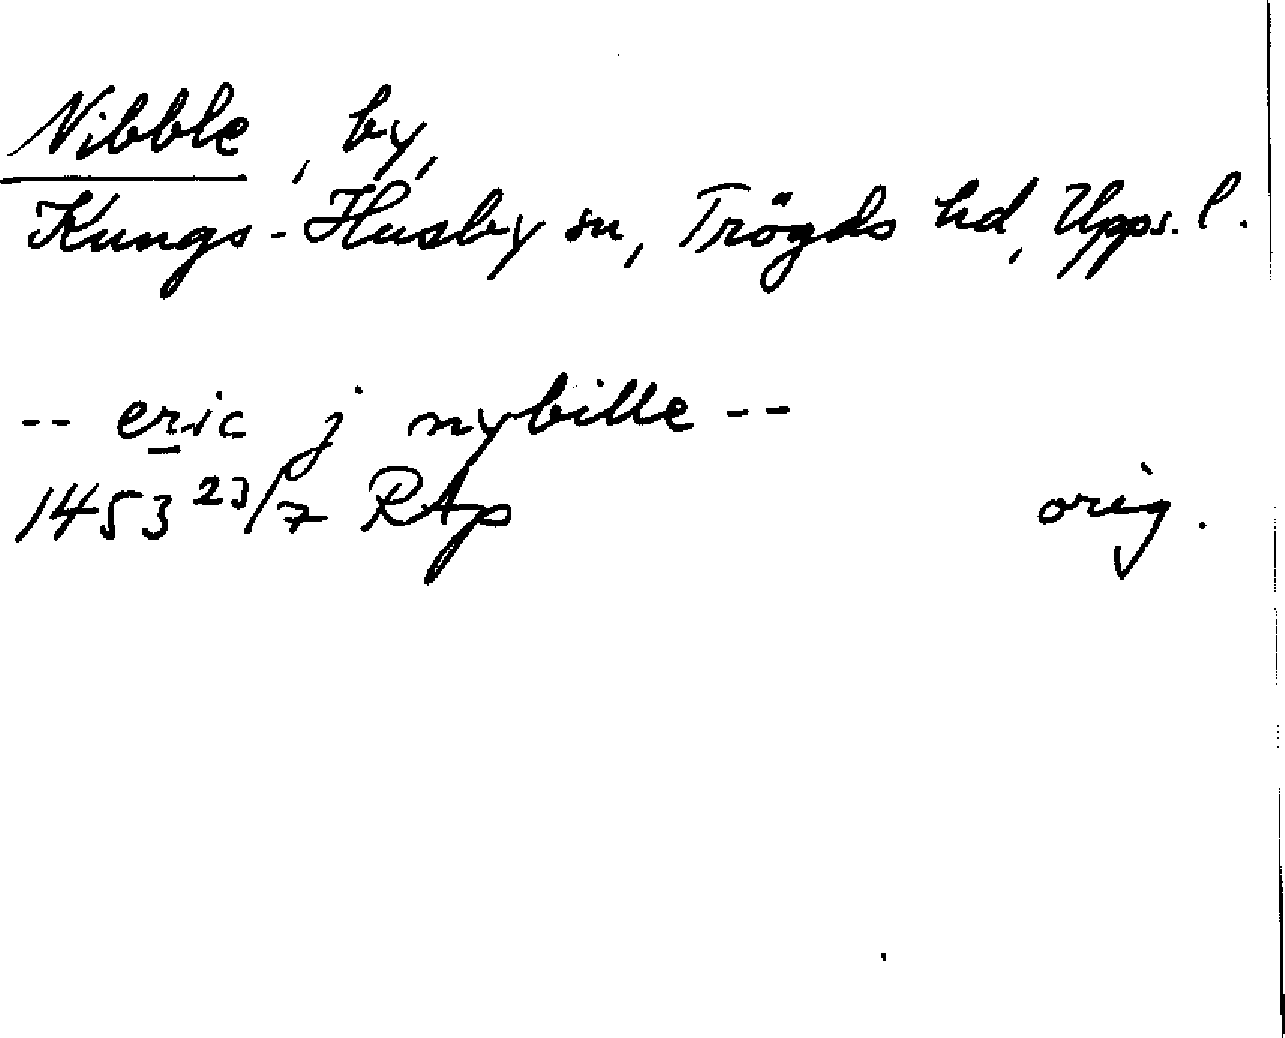 Nibble, by,
Kungs-Husby sn, Trögds hd, Upps. l.
-- eric j nybille --
1453 23/7 RAp orig.